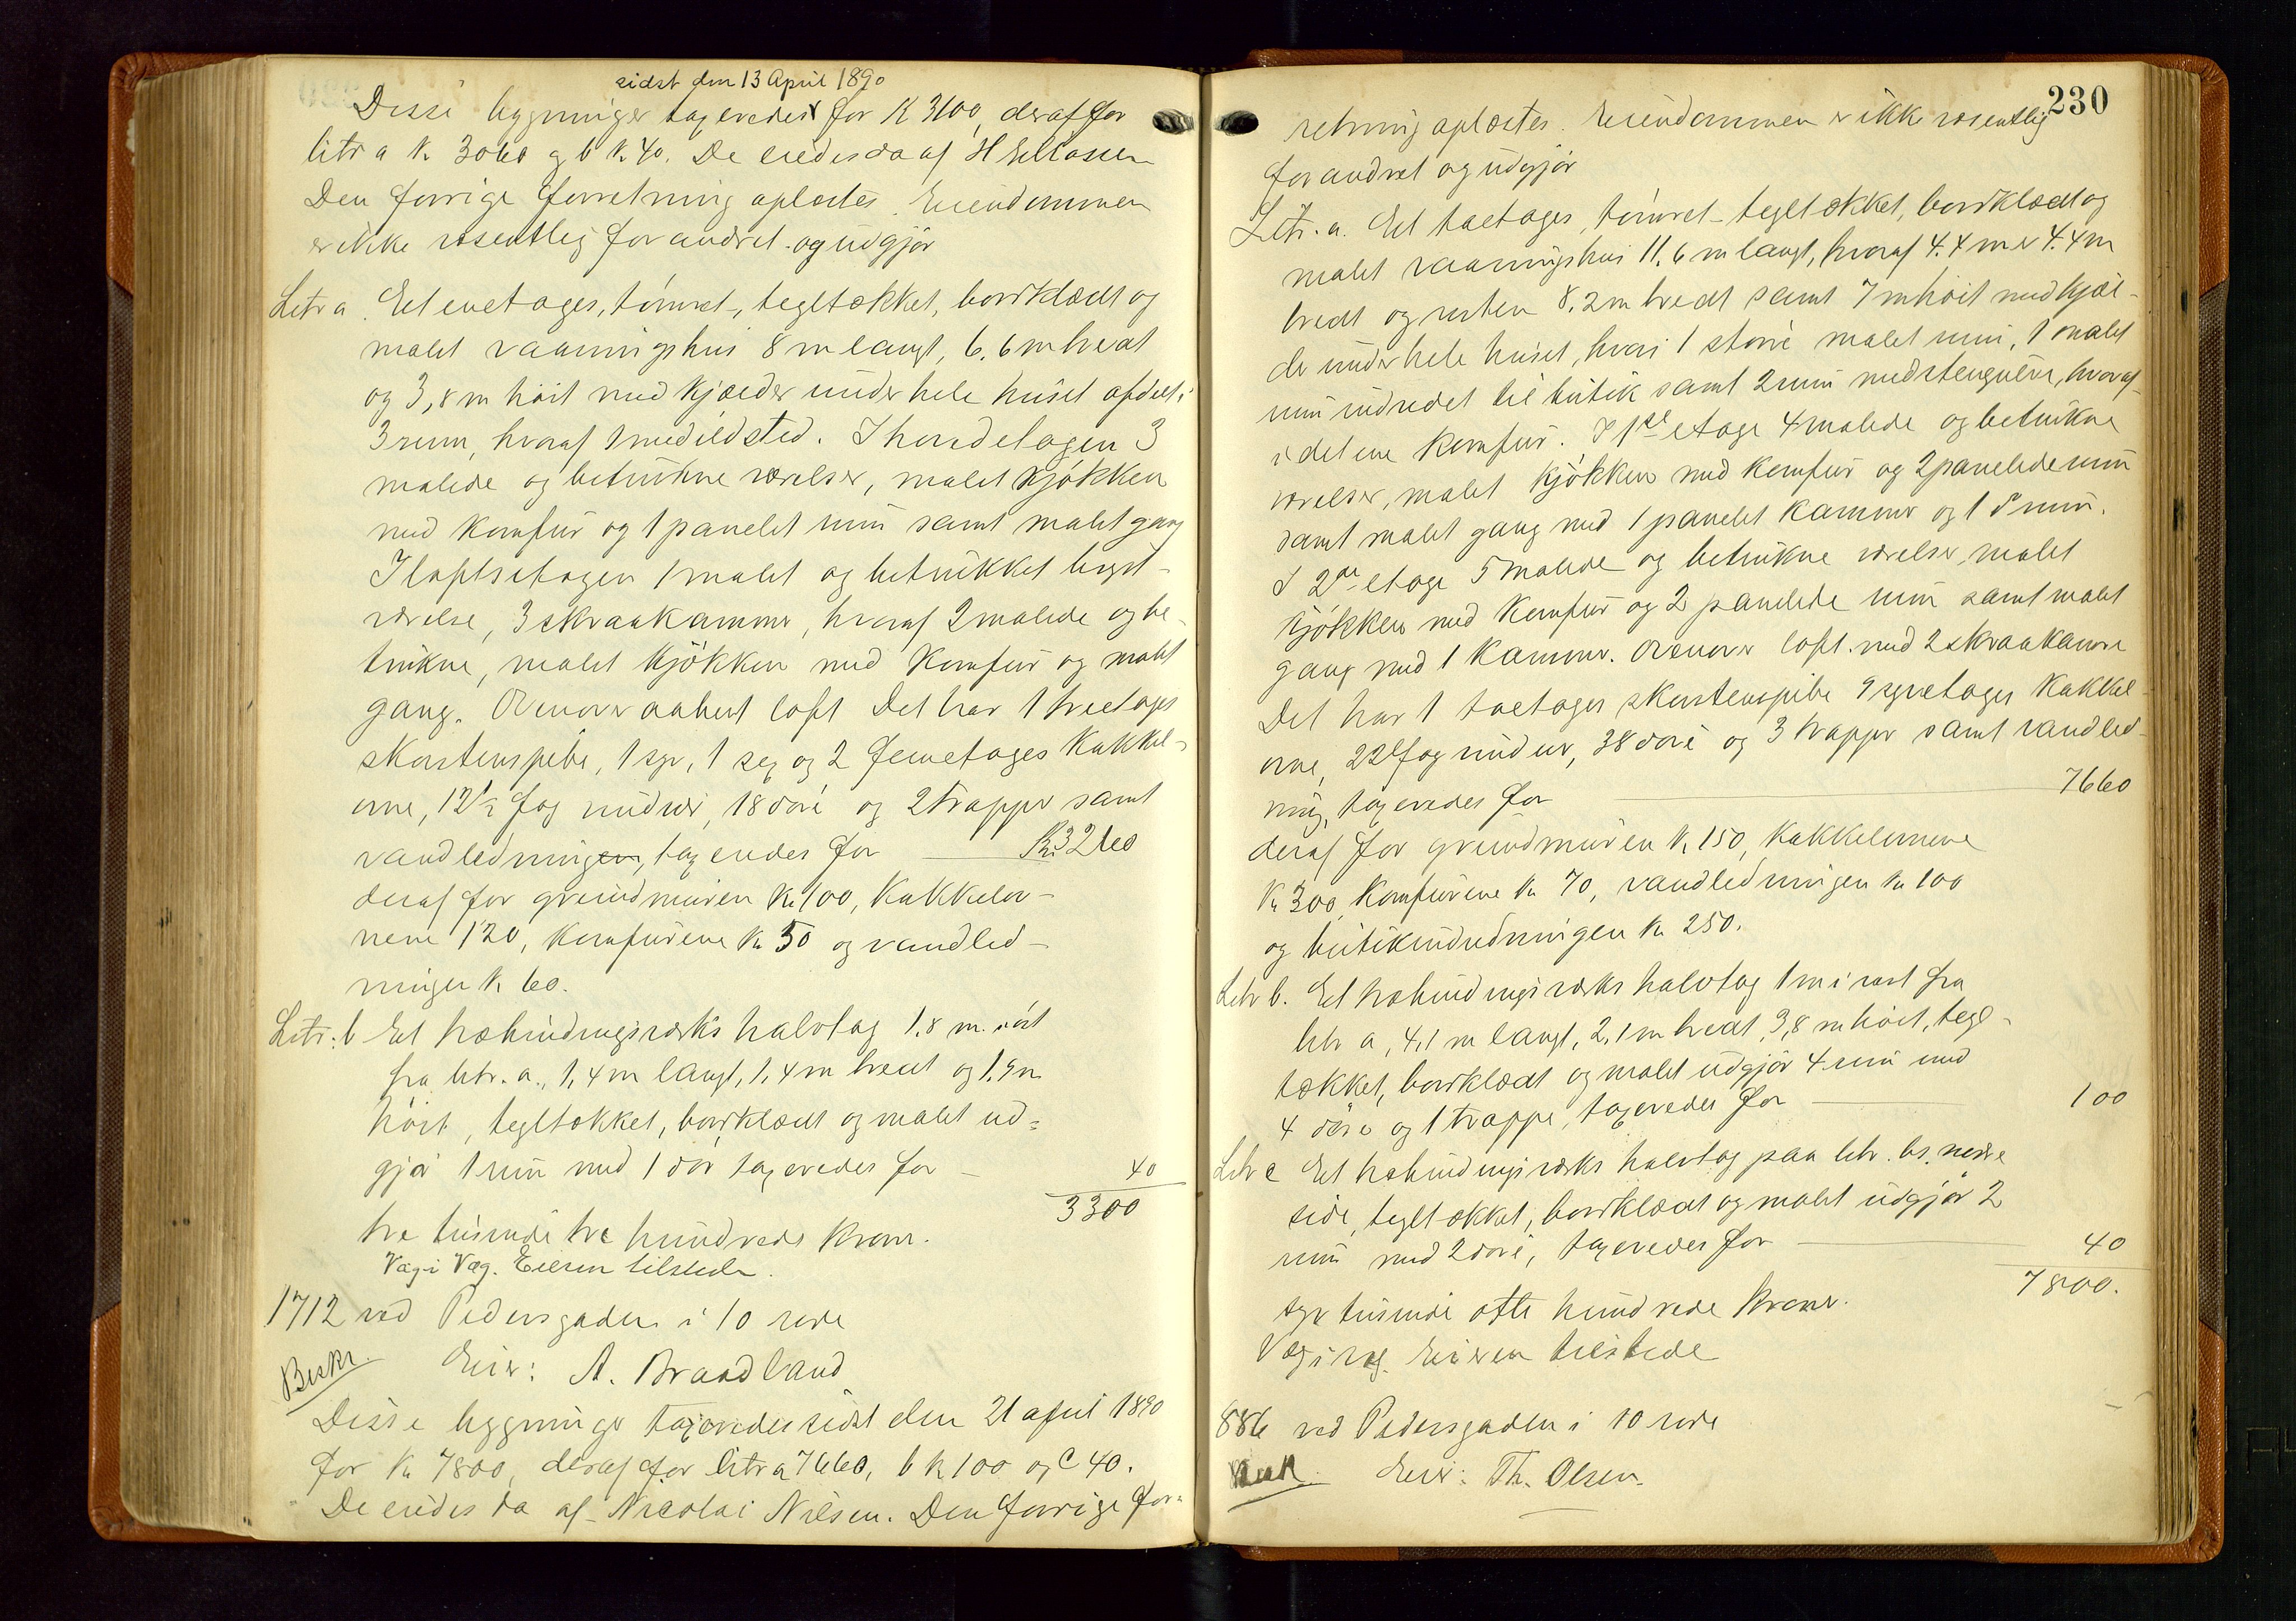 sidst den 13 April 1890
Disse bygninger taxeredes for K 3100, deraf for
litr a K. 3060 og b K. 40. De eiedes da af H
Den forrige forretning oplæstes. Eiendommen
er ikke væsentlig forandret og udgjør
Litr a. Et enetages, tømret-, tegltækket, bordklædt og
malet vaaningshus 8 m langt, 6.6 m bredt
og 3,8 m høit med kjælder under hele huset afdelt i
3 rum, hvoraf 1 med ildsted. I hovedetagen 3
malede og betrukne værelser, malet kjøkken
med komfur og 1 panelet rum samt malet gang
I loftsetagen 1 malet og betrukket kvist-
værelse, 3 skraakammer, hvoraf 2 malede og be-
trukne, malet kjøkken med komfur og malet
gang. Ovenover aabent loft Det har 1 treetages
skorstenspibe, 1 syv, 1 sex og 2 femetages kakkel-
ovne, 12½ fag vinduer, 18 døre og 2 trapper samt
vandledningen, taxeredes for — Kr 3260
deraf for grundmuren K. 100, kakkelov-
nene 120, komfurene K. 50 og vandled-
ningen K. 60.
Litr: b Et hæbindingsværks halvtag 1,8 m. vest
fra litr. a., 1,4 m langt, 1,4 m bredt og 1,9 m
høit, tegltækket, bordklædt og malet ud-
gjør 1 rum med 1 dør taxeredes for — 40
3300
tre tusinde tre hundrede kroner.
Væg i Væg. Eieren tilstede.
1712 ved Pedersgaden i 10 rode
Beskr. Eier: A. Braadland
Disse bygninger taxeredes sidst den 21 april 1890
for K. 7800, deraf for litr a 7660, b K 100 og C 40.
De eiedes da af Nicolai Nilsen. Den forrige for-
230
retning oplæstes. Eiendommen er ikke væsentlig
forandret og udgjør
Litr. a. Et toetages, tømret- tegltækket, bordklædt og
malet vaaningshus 11.6 m langt, hvoraf 4.4 m er 4.4 m
bredt og resten 8.2 m bredt samt 7 m høit med kjæl-
der under hele huset, hvori 1 større malet rum, 1 malet
rum indredet til butik samt 2 rum med stengulve, hvoraf
i det ene komfur. I 1ste etage 4 malede og betrukne
værelser, malet kjøkken med komfur og 2 panelede rum
samt malet gang med 1 panelet kammer og 1 do rum.
I 2den etage 5 malede og betrukne værelser, malet
kjøkken med komfur og 2 panelede rum samt malet
gang med 1 kammer. Ovenover loft med 2 skraakamre
Det har 1 toetages skorstenspibe 9 syvetages kakkel-
ovne, 22 fag vinduer, 38 døre og 3 trapper samt vandled-
ning, taxeredes for — 7660
deraf for grundmuren K. 150, kakkelovnene
K. 300, komfurene K. 70, vandledningen K. 100
og butikindredningen K. 250.
Litr b. Et hæbindingsværks halvtag 1 m i vest fra
litr a, 4,1 m langt, 2,1 m bredt, 3,8 m høit, tegl-
tækket, bordklædt og malet udgjør 4 rum med
4 døre og 1 trappe, taxeredes for — 100
Litr c Et hæbindingsværks halvtag paa litr. bs. nedre
side, tegltækket, bordklædt og malet udgjør 2
rum med 2 døre, taxeredes for — 40
7800.
syv tusinde otte hundrede kroner.
Væg i væg. Eieren tilstede
886 ved Pedersgaden i 10 rode
Eier: Th. Olsen.